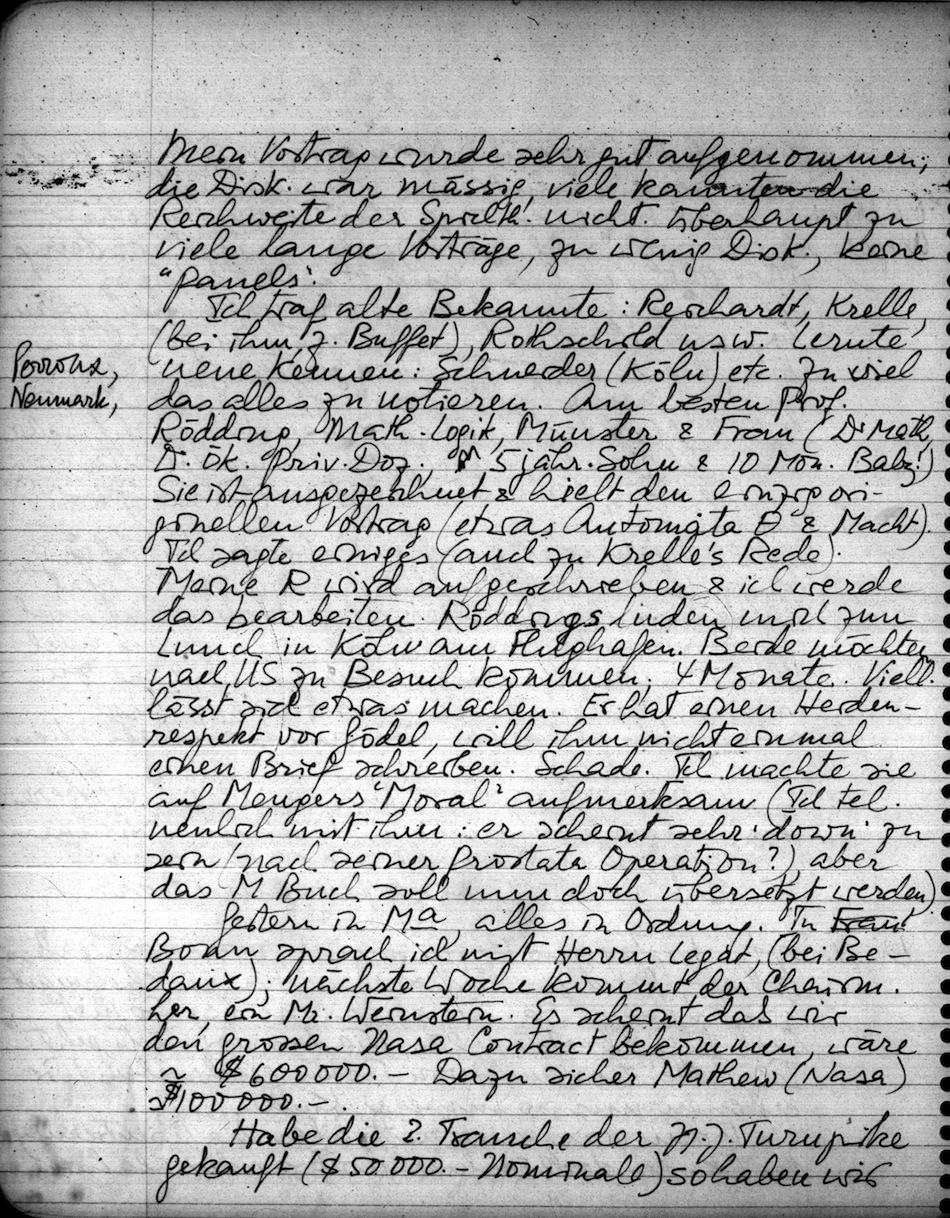 Mein Vortrag wurde sehr gut aufgenommen;
die Disk. war mässig, viele kannten die
Reichweite der Spielth. nicht. Überhaupt zu
viele lange Vorträge, zu wenig Disk., keine
"Panels".
Ich traf alte Bekannte: Reichardt, Krelle,
(bei ihm z. Buffet), Rothschild usw. Lernte
Perroux,
neue kennen: Schneider (Köln) etc. Zu viel
Neumark,
das alles zu notieren. Am besten Prof.
Rödding, Math. Logik, Münster & Frau (Dr Math,
D. Ök. Priv. Doz., 5 jähr. Sohn & 10 Mon. Baby!)
Sie ist ausgezeichnet & hielt den einzig ori-
ginellen Vortrag (etwas Automata & Macht).
Ich sagte einiges (auch zu Krelle's Rede).
Meine R wird aufgeschrieben & ich werde
das bearbeiten. Röddings luden mich zum
Lunch in Köln am Flughafen. Beide möchten
nach US zu Besuch kommen, 4 Monate. Viell.
lässt sich etwas machen. Er hat einen Heiden-
respekt vor Gödel, will ihm nicht einmal
einen Brief schreiben. Schade. Ich machte sie
auf Mengers 'Moral' aufmerksam (Ich tel.
neulich mit ihm: er scheint sehr 'down' zu
sein (nach seiner Prostata Operation?), aber
das M Buch soll nun doch übersetzt werden).
Gestern in Ma, alles in Ordnung. In
Bonn sprach ich mit Herrn Legat, (bei Be-
daux); nächste Woche kommt der Chairm.
her, ein Mr. Weinstein. Es scheint dass wir
den grossen Nasa Contract bekommen, wäre
~ $600000.- Dazu sicher Mathew (Nasa)
~$100000.-.
Habe die 2. Transche der N.J. Turnpike
gekauft ($50000.- Nominale) so haben wir